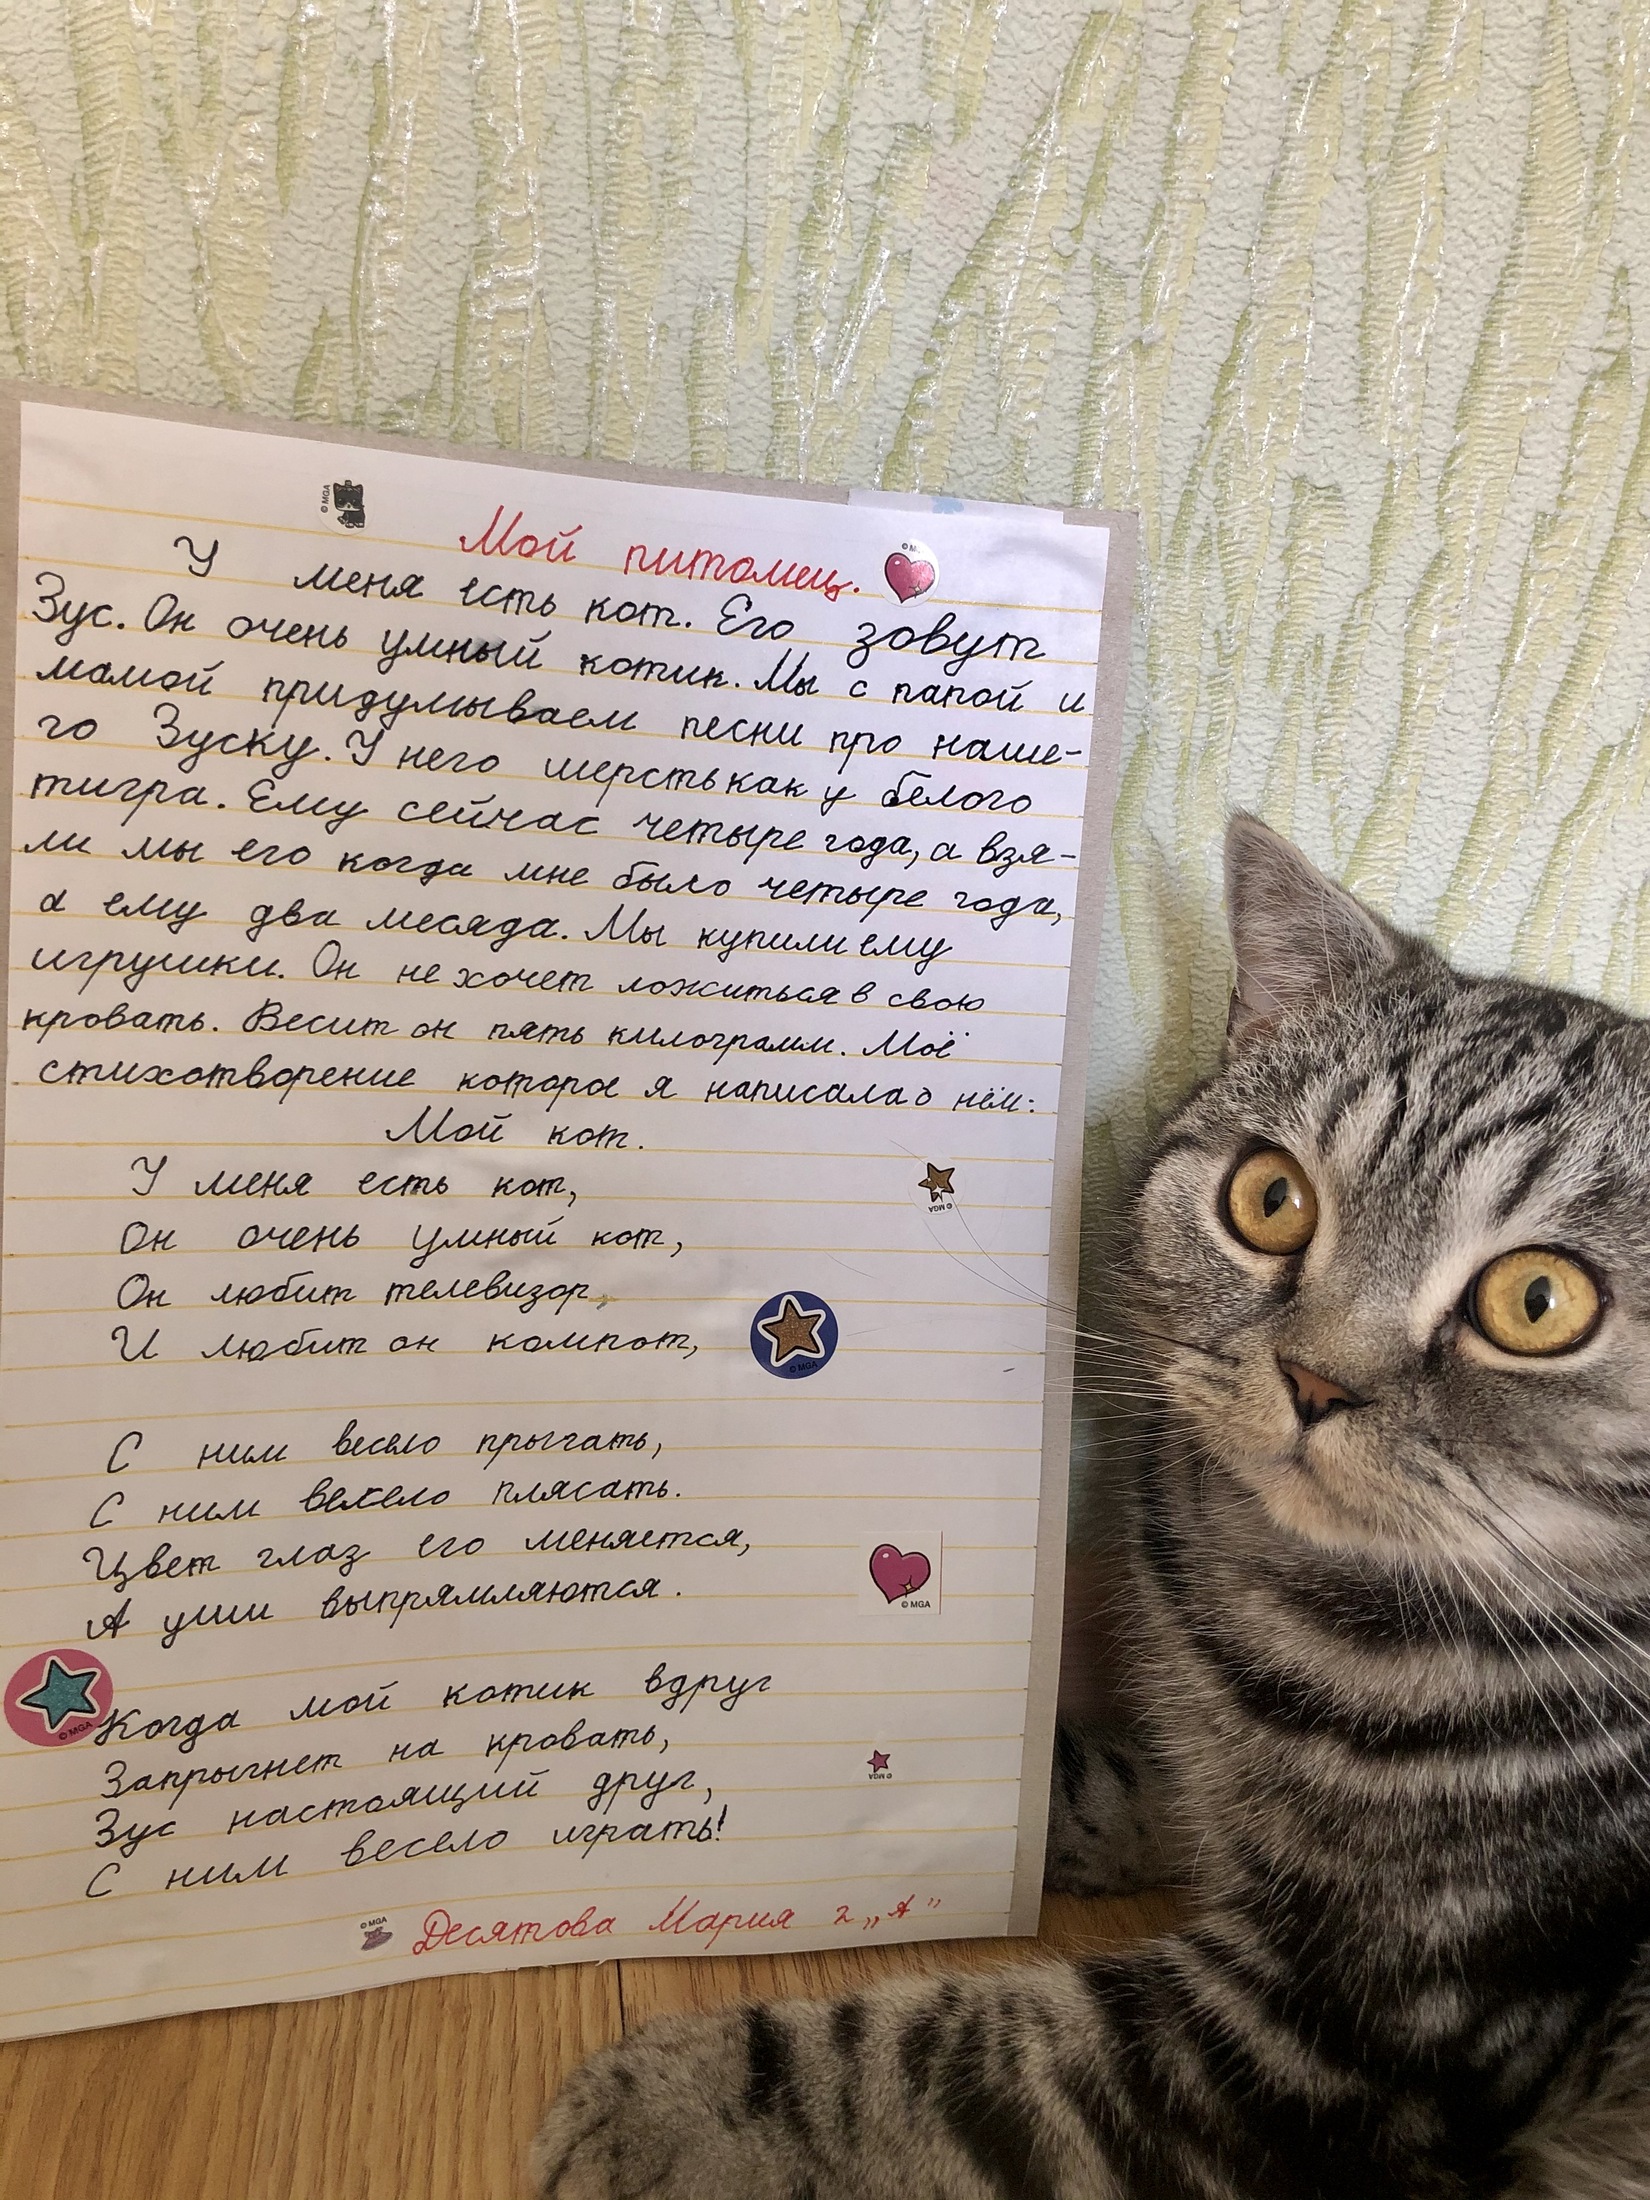 Мой питомец.
У меня есть кот. Его зовут
Зус. Он очень умный котик. Мы с папой и
мамой придумываем песни про наше-
го Зуску. У него шерсть как у белого
тигра. Ему сейчас четыре года, а взя-
ли мы его когда мне было четыре года,
а ему два месяца. Мы купили ему
игрушки. Он не хочет ложиться в свою
кровать. Весит он пять килограмм. Моё
стихотворение которое я написала о нём:
Мой кот.
У меня есть кот,
Он очень умный кот,
Он любит телевизор,
И любит он компот,
С ним весело прыгать,
С ним весело плясать.
Цвет глаз его меняется,
А уши выпрямляются.
Когда мой котик вдруг
Запрыгнет на кровать,
Зус настоящий друг,
С ним весело играть!
Десятова Мария 2 „А"
© MGA
© M
© MGA
© MGA
© MGA
© MGA
© MGA
© MGA